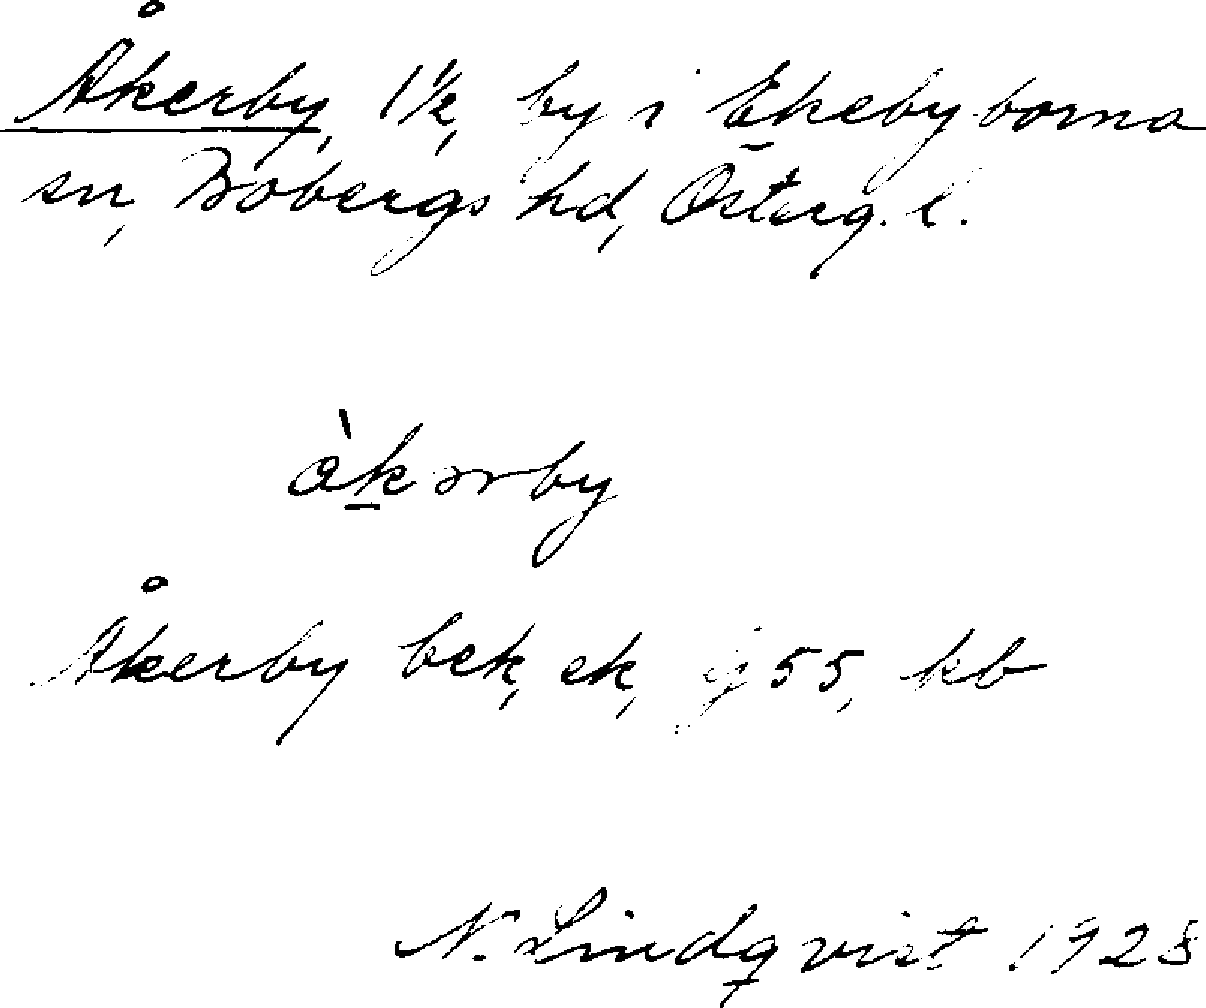 Åkerby, 1½, by i Ekebyborna
sn, Bobergs hd, Österg. l.
àkərby
Åkerby bek, ek, gj 55, kb
N. Lindqvist 1928